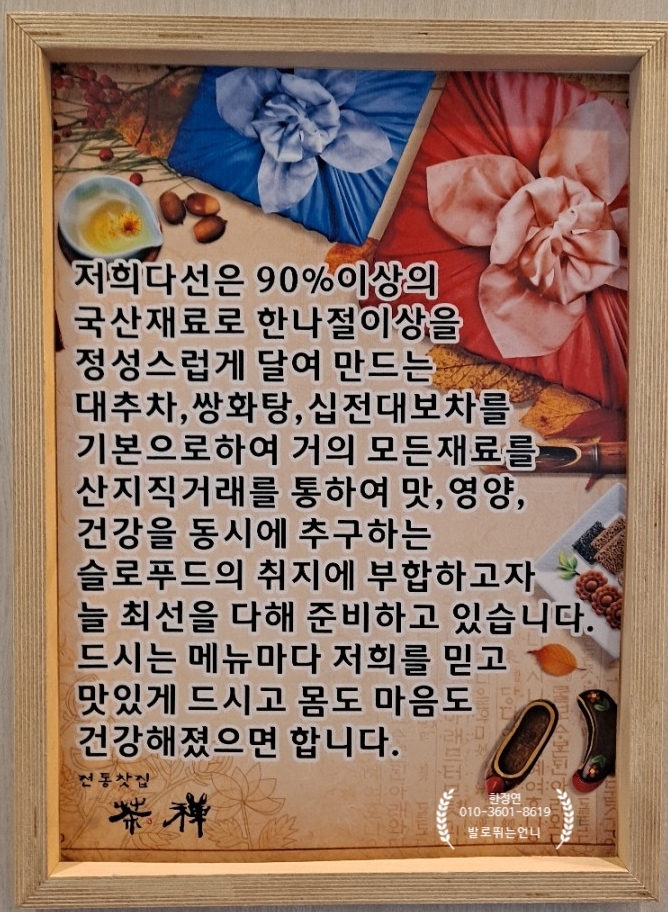 저희다선은 90%이상의
국산재료로 한나절이상을
정성스럽게 달여 만드는
대추차,쌍화탕,십전대보차를
기본으로하여 거의 모든재료를
산지직거래를 통하여 맛,영양,
건강을 동시에 추구하는
슬로푸드의 취지에 부합하고자
늘 최선을 다해 준비하고 있습니다.
드시는 메뉴마다 저희를 믿고
맛있게 드시고 몸도 마음도
건강해졌으면 합니다.
전통찻집
茶 禪
한정연
010-3601-8619
발로뛰는언니